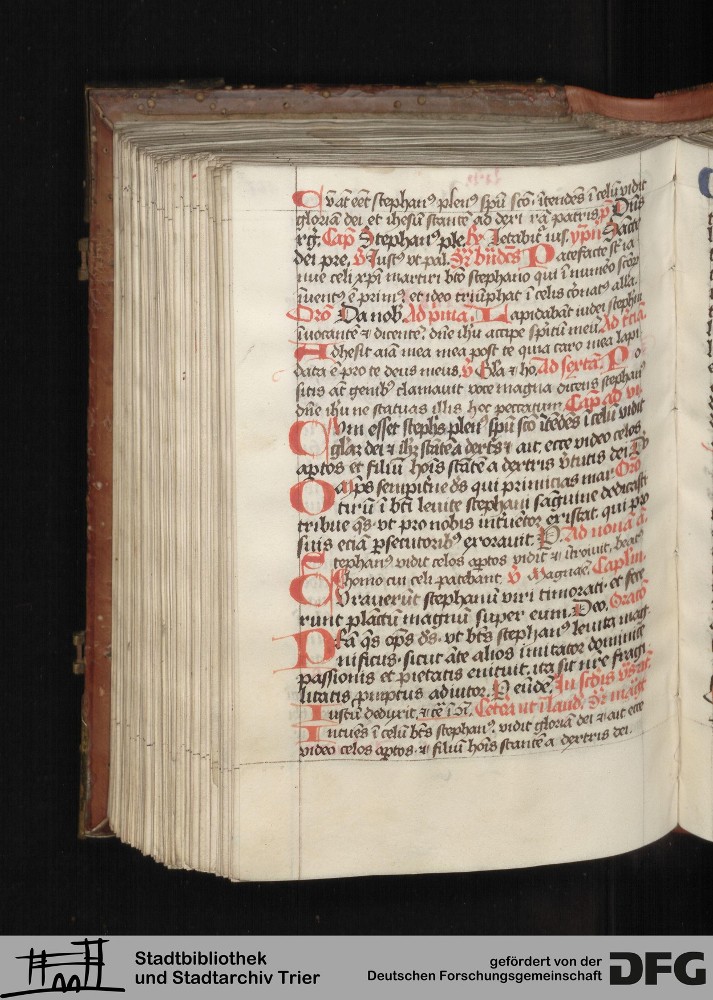 Cū aūt eēt stephanꝰ plenꝰ spū scō ītendēs ī celū vidit
gloriam dei et ihesum stantē ad dext patris Dūs
Cap Stephanꝰ ple Letabitᷓ ius
dei pre Iustꝰ vt pal Patefacte st ia
nue celi xpī martiri bto stephano qui ī numeo
īuentꝰ ē primꝰ et ideo triūphat ī celis alla
Orō Da nob Ad pīmā Lapidabāt iudei stephū
īuocantē ⁊ dicentē dn̄e ihū accipe spiritū meū Ad tciā
Adhesit aīa mea post te quia caro mea lapi
data ē pro te deus meus Gla ⁊ ho Ad sextā Po
sitis aūt genibꝰ clamauit voce magna dicens stephanꝰ
dn̄e ihū ne statuas illis hoc peccatum Cap ad vi
Cum esset stephꝰ plenꝰ spū scō ītēdēs ī celū vidit
dei ⁊ stātē a dextris ait ecce video celos
aptos et filiū hoīs stātē a dextris v̓tutis dei
Oāips sempitn̄e ds qui primicias mar Orō
tirū ī btī leuite stephani saguine dedicasti
tribue qs vt pro nobis intuētor existat qui pro
suis eciā psecutoribꝰ exorauit Ad nonā
Stephanꝰ vidit celos aptos vidit ⁊ ītroiuit beatꝰ
homo cui celi patebant Magnae Caplm
Curauerūt stephanū viri timorati et fece
runt plāctū magnū super eum Deo Oracō
Pſta qs ops ds vt btꝰs stephanꝰ leuita mag
nificus sicut āte alios imitator dominice
passionis et pietatis enituit ita sit nr̄e fragi
litatis prōptus adiutor
Iustū deduxit Cetera vt ī laud
Intuēs ī celū btꝰs stephanꝰ vidit gloriā dei ⁊ ait ecce
video celos aptos ⁊ filiū hoīs stantē a dextris dei
Stadtbibliothek
und Stadtarchiv Trier
gefördert von der
Deutschen Forschungsgemeinschaft
DFG